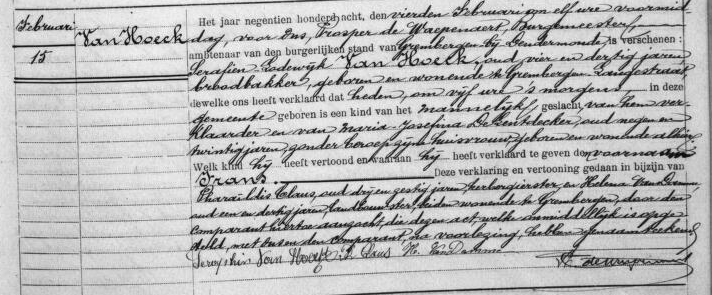 Februari
15
Van Hoeck
Het jaar negentien honderd acht, den vierden Februari om elf ure voormid-
dag, voor Ons, Prosper de Waepenaert, Burgemeester,
ambtenaar van den burgerlijken stand van Grembergen bij Dendermonde, is verschenen:
Serafien-Lodewijk Van Hoeck, oud vier en dertig jaren,
broodbakker, geboren en wonende te Grembergen Langestraat
dewelke ons heeft verklaard dat heden, om vijf ure 's morgens, in deze
gemeente geboren is een kind van het mannelijk geslacht, van hem ver-
klaarder en van Maria-Josefina De Landtsheer oud negen en
twintig jaren, zonder beroep zijne huisvrouw, geboren en wonende alhier
Welk kind hij heeft vertoond en waaraan hij heeft verklaard te geven den voornaam
Frans. Deze verklaring en vertooning gedaan in bijzijn van
Pharaïldis Claus, oud drij en zestig jaren herbergierster, en Helena Van Damme,
oud een en dertig jaren, landbouwster, beiden wonende te Grembergen, door den
comparant hiertoe aangezocht, die dezen act, welke onmiddellijk is opge-
steld, met ons en den comparant, na voorlezing, hebben geteekend
Seraphin Van Hoeck P. Claus H. Van Damme